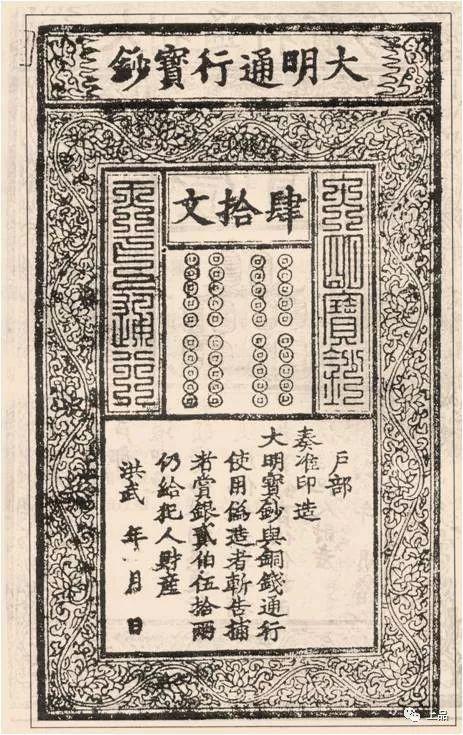 大明通行寶鈔
肆拾文
大明寶鈔
天下通行
戶部
奏准印造
大明寶鈔與銅錢通行
使用僞造者斬告捕
者賞銀貳伯伍拾兩
仍給犯人財産
洪武 年 月 日
上品